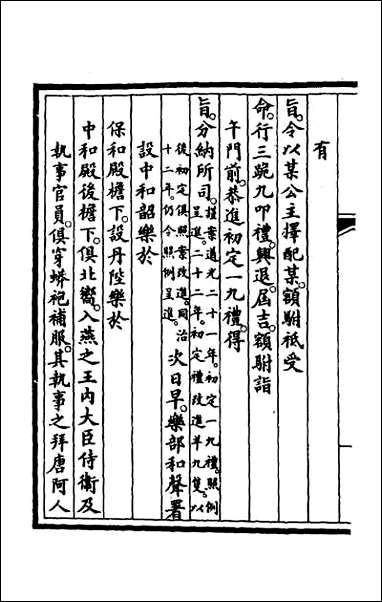 有
旨。令以某公主擇配某。額駙祇受
命。行三跪九叩禮。興退。屆吉。額駙詣
午門前。恭進初定一九禮。得
旨。分納所司。謹案道光二十一年。初定一九禮。照例
呈進。二十二年。初定禮改進羊九隻。以
後初定俱照案改進。同治
十二年。仍令照例呈進。次日早。樂部和聲署
設中和韶樂於
保和殿檐下。設丹陛樂於
中和殿後檐下。俱北嚮。入燕之王內大臣侍衛及
執事官員。俱穿蟒袍補服。其執事之拜唐阿人